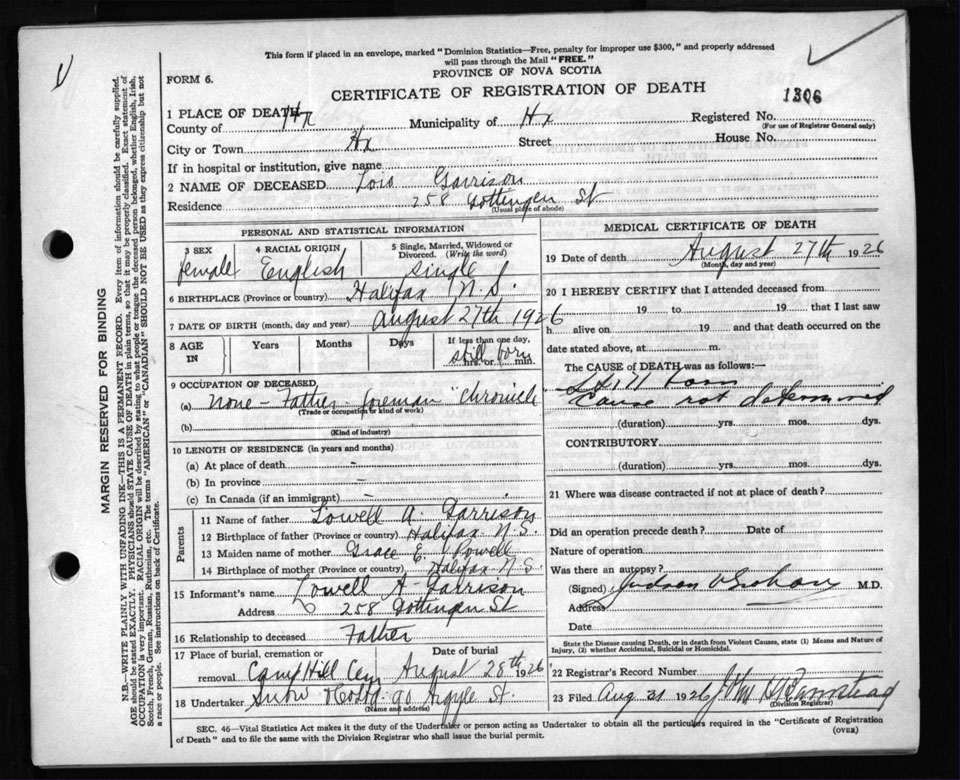 This form if placed in an envelope, marked "Dominion Statistics—Free, penalty for improper use $300," and properly addressed
will pass through the Mail "FREE."
FORM 6.
PROVINCE OF NOVA SCOTIA
CERTIFICATE OF REGISTRATION OF DEATH
1306
1 PLACE OF DEATH
County of Hx Municipality of Hx Registered No.
(For use of Registrar General only)
City or Town Hx Street House No.
If in hospital or institution, give name
2 NAME OF DECEASED Lois Garrison
Residence 258 Gottingen St
(Usual place of abode)
PERSONAL AND STATISTICAL INFORMATION
3 SEX 4 RACIAL ORIGIN 5 Single, Married, Widowed or
Divorced. (Write the word)
female English Single
6 BIRTHPLACE (Province or country) Halifax N.S.
7 DATE OF BIRTH (month, day and year) August 27th 1926
8 AGE IN Years Months Days If less than one day,
still born
hrs. or min.
9 OCCUPATION OF DECEASED,
(a) None - Father - foreman "Chronicle
(Trade or occupation or kind of work)
(b)
(Kind of industry)
10 LENGTH OF RESIDENCE (in years and months)
(a) At place of death -
(b) In province -
(c) In Canada (if an immigrant) -
Parents
11 Name of father Lowell A. Garrison
12 Birthplace of father (Province or country) Halifax N.S.
13 Maiden name of mother Grace E. Powell
14 Birthplace of mother (Province or country) Halifax N.S.
15 Informant's name Lowell A. Garrison
Address 258 Gottingen St
16 Relationship to deceased Father
17 Place of burial, cremation or Date of burial
removal Camp Hill Cem August 28th 1926
18 Undertaker Snow & Co Ltd 90 Argyle St.
(Name and address)
MEDICAL CERTIFICATE OF DEATH
19 Date of death August 27th 1926
(Month, day and year)
20 I HEREBY CERTIFY that I attended deceased from
19 to 19 that I last saw
h alive on 19 and that death occurred on the
date stated above, at m.
The CAUSE of DEATH was as follows:
Still born
Cause not determined
(duration) yrs. mos. dys.
CONTRIBUTORY
(duration) yrs. mos. dys.
21 Where was disease contracted if not at place of death?
Did an operation precede death? Date of
Nature of operation
Was there an autopsy?
(Signed) Judson V Graham M.D.
Address
Date
State the Disease causing Death, or in death from Violent Causes, state (1) Means and Nature of
Injury, (2) whether Accidental, Suicidal or Homicidal.
22 Registrar's Record Number
23 Filed Aug 31 1926
(Division Registrar)
SEC. 46—Vital Statistics Act makes it the duty of the Undertaker or person acting as Undertaker to obtain all the particulars required in the "Certificate of Registration
of Death" and to file the same with the Division Registrar who shall issue the burial permit.
(OVER)
MARGIN RESERVED FOR BINDING
N.B.—WRITE PLAINLY WITH UNFADING INK—THIS IS A PERMANENT RECORD. Every item of information should be carefully supplied.
AGE should be stated EXACTLY. PHYSICIANS should STATE CAUSE OF DEATH in plain terms, so that it may be properly classified. Exact statement of
OCCUPATION is very important. RACIAL ORIGIN will be described by stating to what people or tongue the deceased person belonged, whether English, Irish,
Scotch, French, German, Russian, Ruthenian, etc. The terms "AMERICAN" or "CANADIAN" SHOULD NOT BE USED as they express citizenship but not
a race or people. See instructions on back of Certificate.